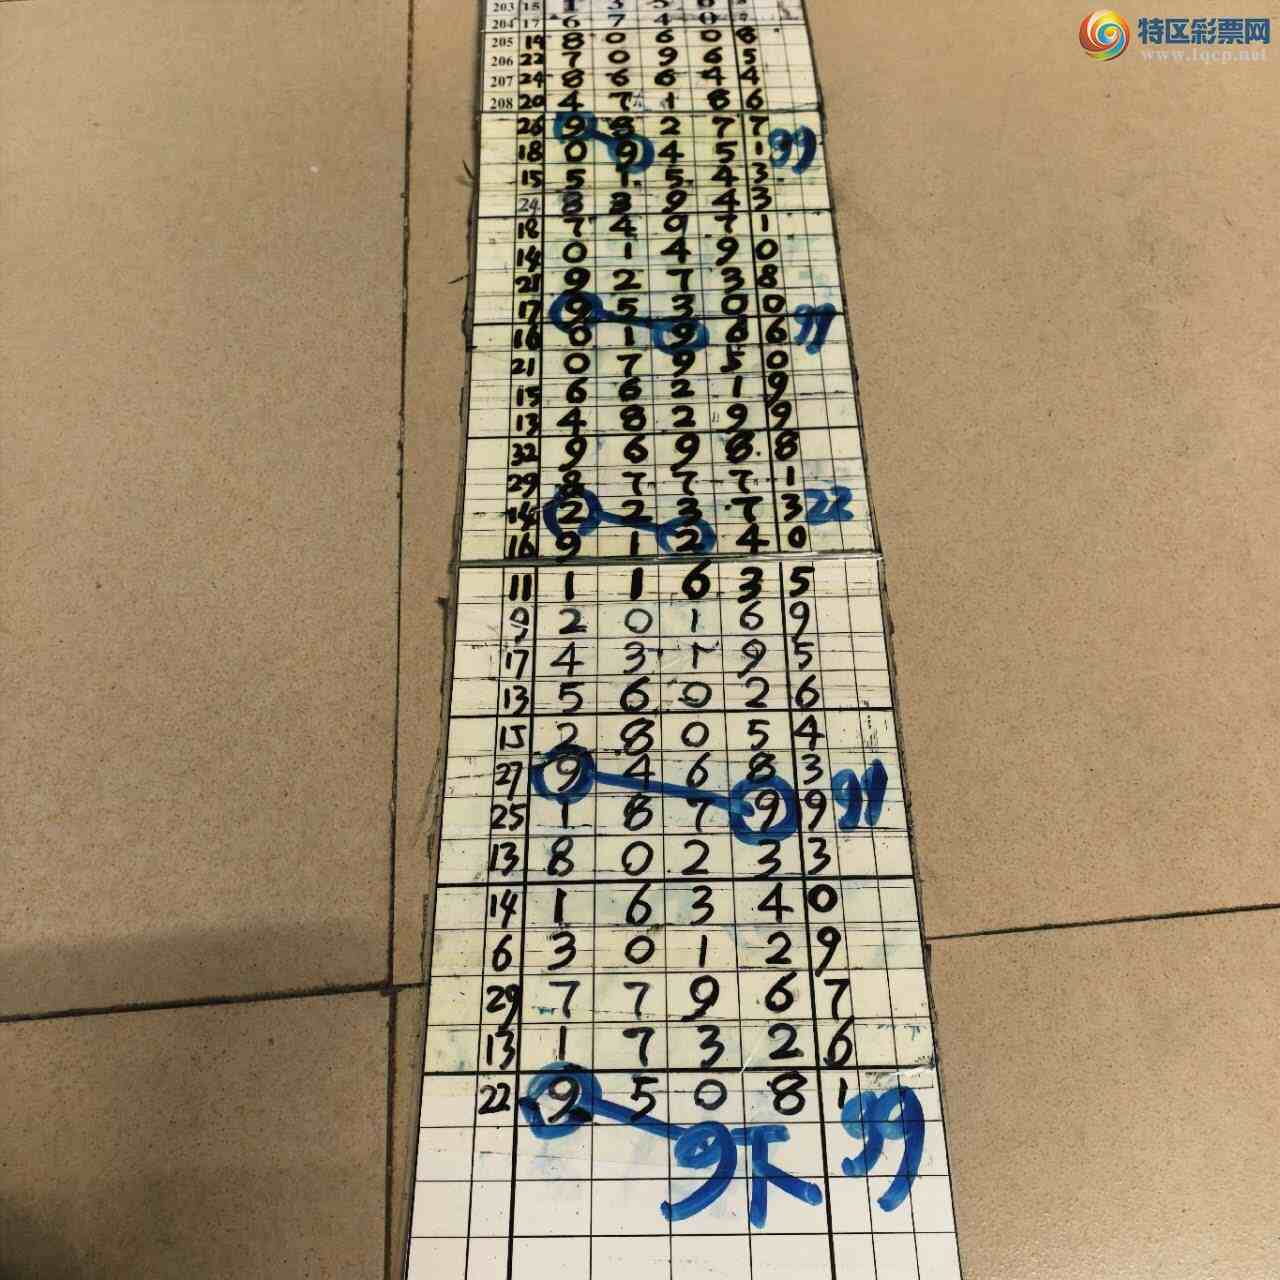 特区彩票网
www.tqcp.net
203 15 1 3
204 17 6 7 4 0
205 19 8 0 6 0 6
206 22 7 0 9 6 5
207 24 8 6 6 4 4
208 20 4 7 1 8 6
26 9 8 2 7 7
18 0 9 4 5 1 99
15 5 1 5 4 3
24 8 3 9 4 3
18 7 4 0 7 1
14 0 1 4 9 0
21 9 2 7 3 8
17 9 5 3 0 0
16 0 1 9 6 6 99
21 0 7 9 5 0
15 6 6 2 1 9
13 4 8 2 9 9
32 9 6 9 8 8
29 8 7 7 7 1
14 2 2 3 7 3 22
16 9 1 2 4 0
11 1 1 6 3 5
9 2 0 1 6 9
17 4 3 1 9 5
13 5 6 0 2 6
15 2 8 0 5 4
27 9 4 6 8 3
25 1 8 7 9 9 99
13 8 0 2 3 3
14 1 6 3 4 0
6 3 0 1 2 9
29 7 7 9 6 7
13 1 7 3 2 6
22 9 5 0 8 1
9下 99